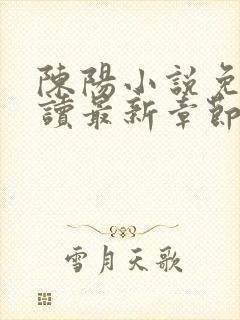 陳陽小說免
讀最新章節
雪月天歌